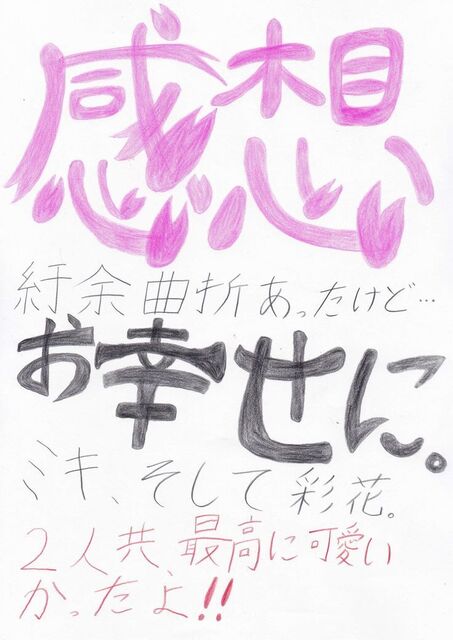 感想
紆余曲折あったけど…
お幸せに。
ミキ、そして彩花。
2人共、最高に可愛い
かったよ!!